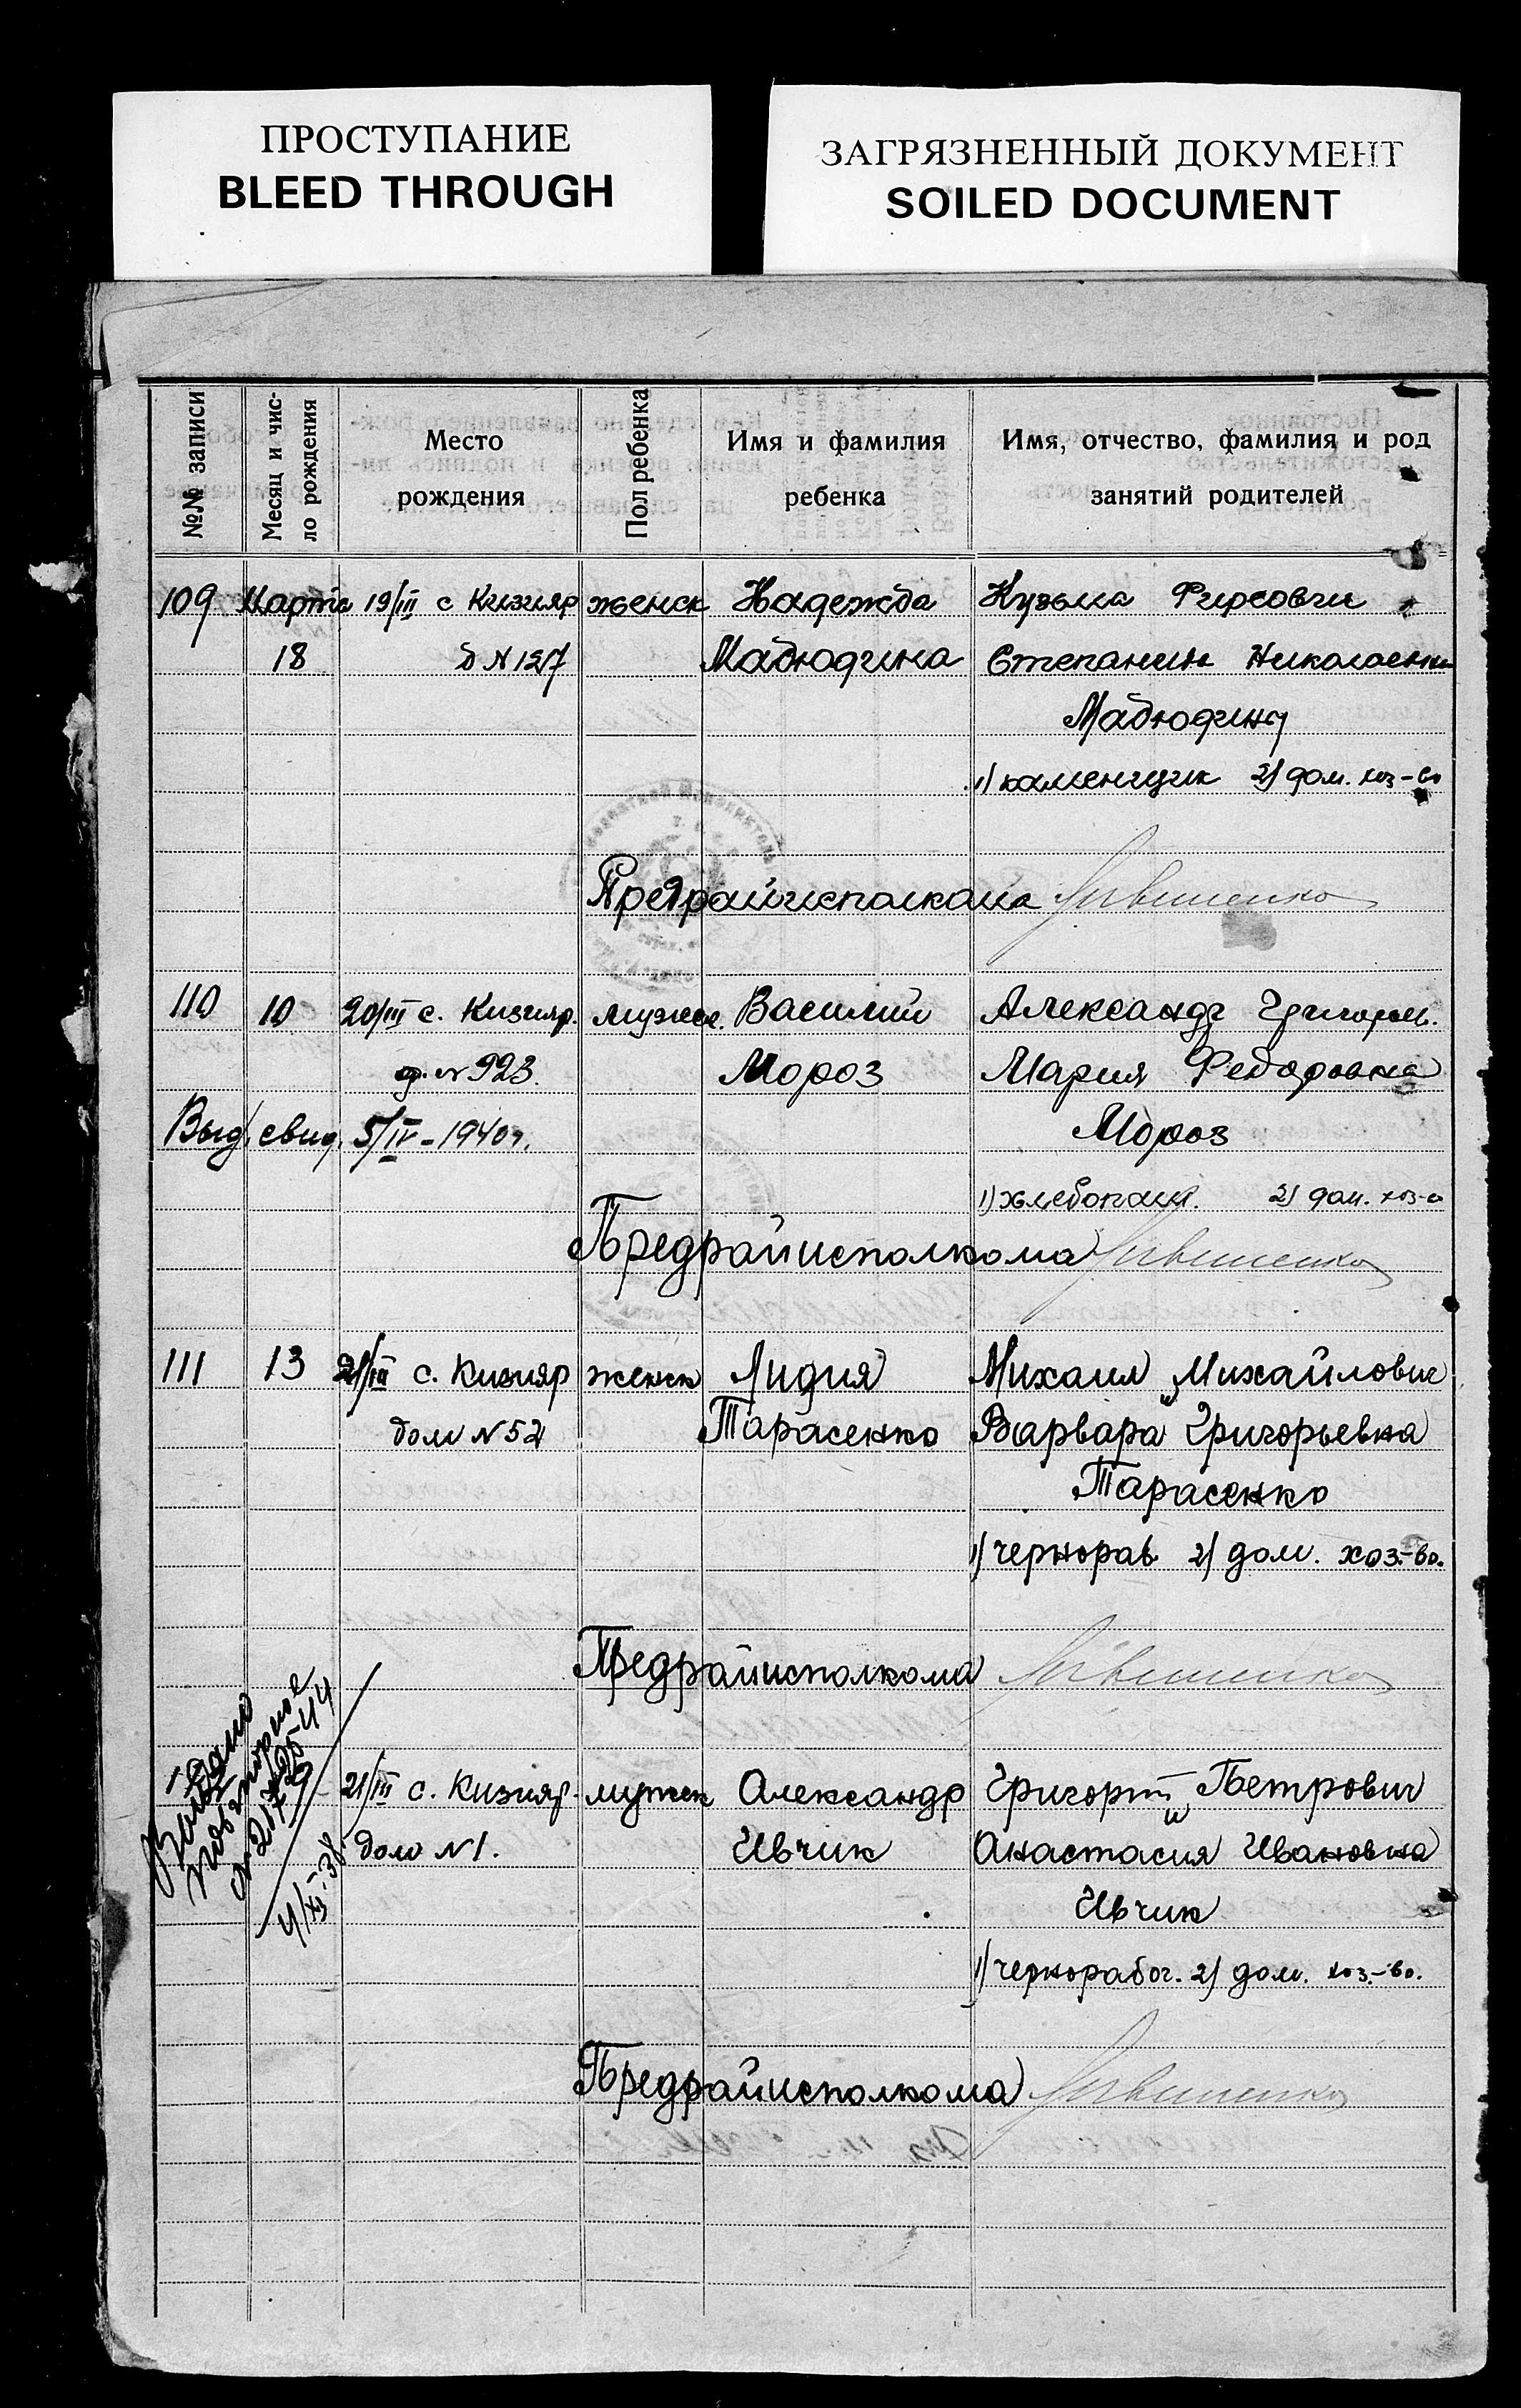 ПРОСТУПАНИЕ
BLEED THROUGH
ЗАГРЯЗНЕННЫЙ ДОКУМЕНТ
SOILED DOCUMENT
№№ записи
Месяц и чис-
ло рождения
Место
рождения
Пол ребенка
Имя и фамилия
ребенка
Имя, отчество, фамилия и род
занятий родителей
109 Марта 19/III с Кизияр женск Надежда Кузьма Фирсович
18 д N 127 Мадюдина Степанида Николаевна
Мадюдины
1) каменщик 2) дом. хоз-во
Предрайисполкома
110 10 20/III с. Кизияр. мужск. Василий Александр Григорьев.
д. N 923. Мороз Мария Федоровна
Выд. свид. 5/IV-1940г. Мороз
1) хлебопаш. 2) дом. хоз-во
Предрайисполкома
111 13 21/III с. Кизияр женск Лидия Михаил Михайлович
дом N 52 Тарасенко и Варвара Григорьевна
Тарасенко
1) чернораб. 2) дом. хоз-во.
Предрайисполкома
Выдано
повторное
4/XI-38
21/III с. Кизияр. мужск Александр Григорий Петрович
дом N 1. Ивчик и Анастасия Ивановна
Ивчик
1) чернорабоч. 2) дом. хоз.-во.
Предрайисполкома